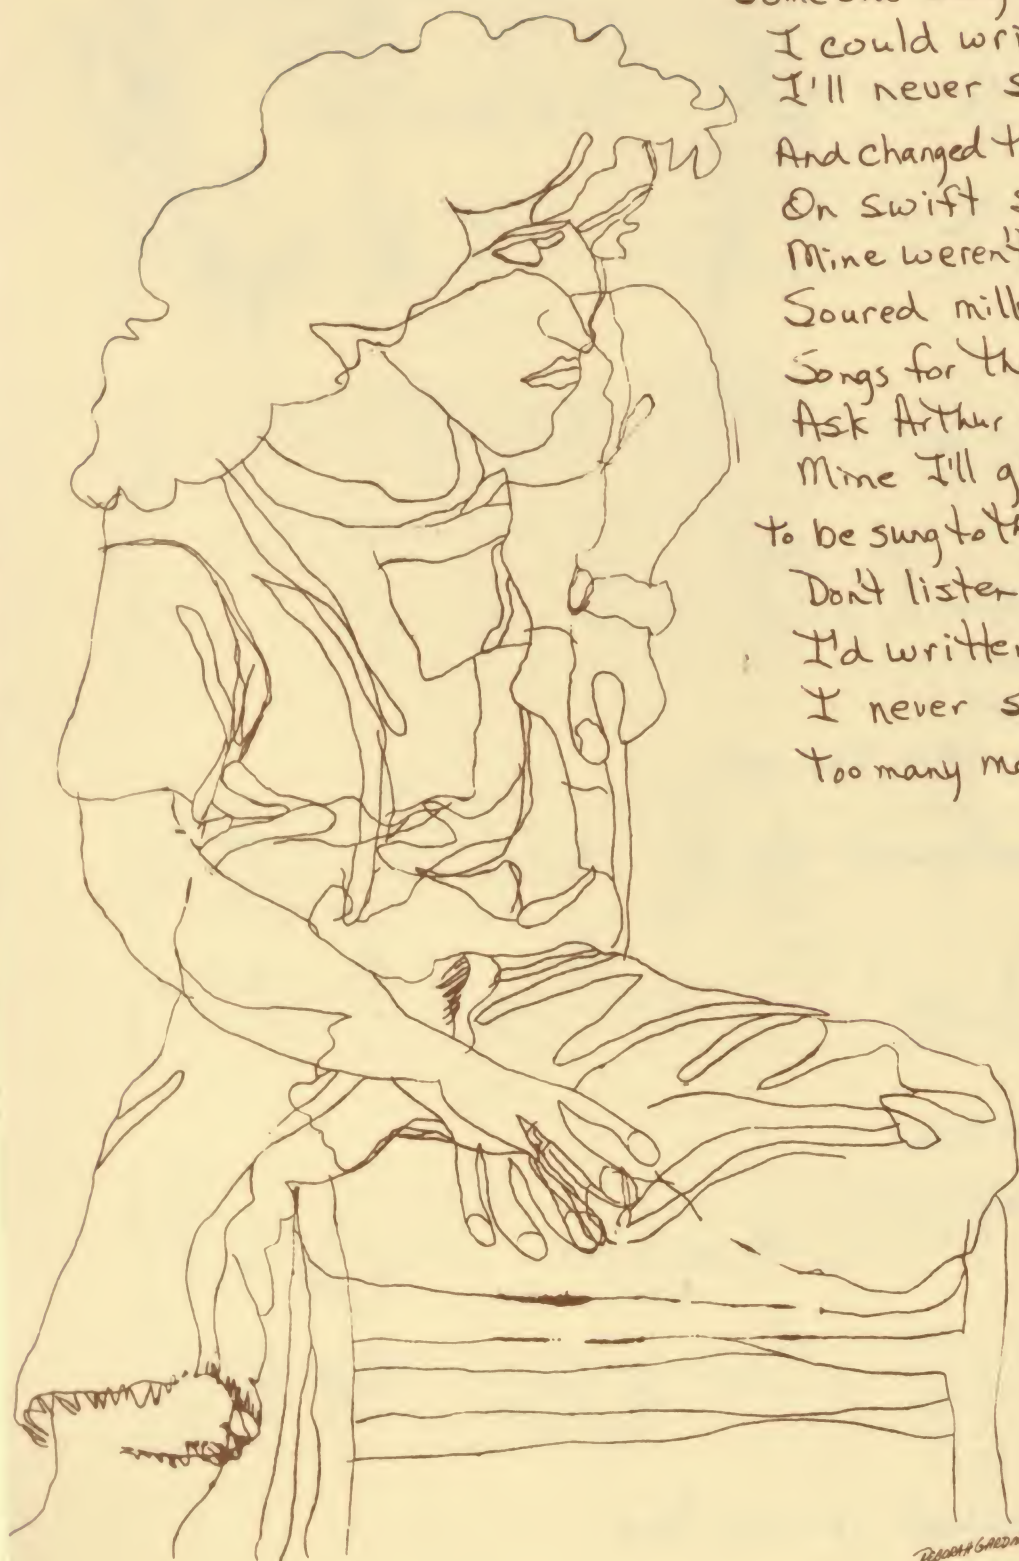 I could wri
I'll never s
And changed t
On swift s
Mine weren't
Soured mil
Songs for th
Ask Arthur
Mine I'll g
to be sung to th
Don't listen
I'd written
I never s
Too many m
DEBORAH GARDN